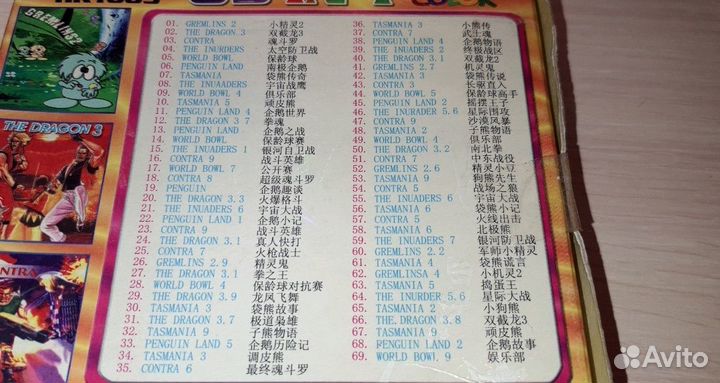 COLOR
GREMLINS2
THE DRAGON 3
01. GREMLINS 2 小精灵2
02. THE DRAGON 3 双截龙3
03. CONTRA 魂斗罗
04. THE INURDERS 太空防卫战
05. WORLD BOWL 保龄球
06. PENGUIN LAND 南极企鹅
07. TASMANIA 袋熊传奇
08. THE INUAADERS 宇宙战鹰
09. WORLD BOWL 4 俱乐部
10. TASMANIA 5 顽皮熊
11. PENGUIN LAND 4 企鹅世界
12. THE DRAGON 3.7 拳魂
13. PENGUIN LAND 企鹅之战
14. WORLD BOWL 保龄球赛
15. THE INVADERS 1 银河自卫战
16. CONTRA 9 战斗英雄
17. WORLD BOWL 7 公开赛
18. CONTRA 8 超级魂斗罗
19. PENGUIN 企鹅趣谈
20. THE DRAGON 3.3 火爆格斗
21. THE INVADERS 6 宇宙大战
22. PENGUIN LAND 1 企鹅小记
23. CONTRA 9 战斗英雄
24. THE DRAGON 3.1 真人快打
25. CONTRA 7 火枪战士
26. GREMLINS 2.9 精灵鬼
27. THE DRAGON 3.1 拳之王
28. WORLD BOWL 4 保龄球对抗赛
29. THE DRAGON 3.9 龙凤飞舞
30. TASMANIA 3 袋熊故事
31. THE DRAGON 3.7 极道枭雄
32. TASMANIA 9 子熊物语
33. PENGUIN LAND 5 企鹅历险记
34. TASMANIA 3 调皮熊
35. CONTRA 6 最终魂斗罗
36. TASMANIA 3 小熊传
37. CONTRA 7 武士魂
38. PENGUIN LAND 4 企鹅物语
39. THE INVADERS 2 终极战区
40. THE DRAGON 3.1 双截龙2
41. GREMLINS 2.7 机灵鬼
42. TASMANIA 3 袋熊传说
43. CONTRA 3 长驱直入
44. WORLD BOWL 5 保龄球高手
45. PENGUIN LAND 2 摇摆王子
46. THE INURADER 5.6 星际围攻
47. CONTRA 9 沙漠风暴
48. TASMANIA 2 子熊物语
49. WORLD BOWL 4 俱乐部
50. THE DRAGON 3.2 南北拳
51. CONTRA 7 中东战役
52. GREMLINS 2.6 精灵小豆
53. TASMANIA 9 狗熊先生
54. CONTRA 5 战场之狼
55. THE INVADERS 6 宇宙大战
56. TASMANIA 6 袋熊小记
57. CONTRA 5 火线出击
58. TASMANIA 6 北极熊
59. THE INVADERS 7 银河防卫战
60. GREMLINS 2.2 军师小精灵
61. TASMANIA 4 袋熊谎言
62. GREMLINSA 4 小机灵2
63. TASMANIA 5 捣蛋王
64. THE INURDER 5.6 星际大战
65. TASMANIA 2 小狗熊
66. THE.DRAGON 3.8 双截龙3
67. TASMANIA 9 顽皮熊
68. PENGUIN LAND 2 企鹅故事
69. WORLD BOWL 9 娱乐部
Avito